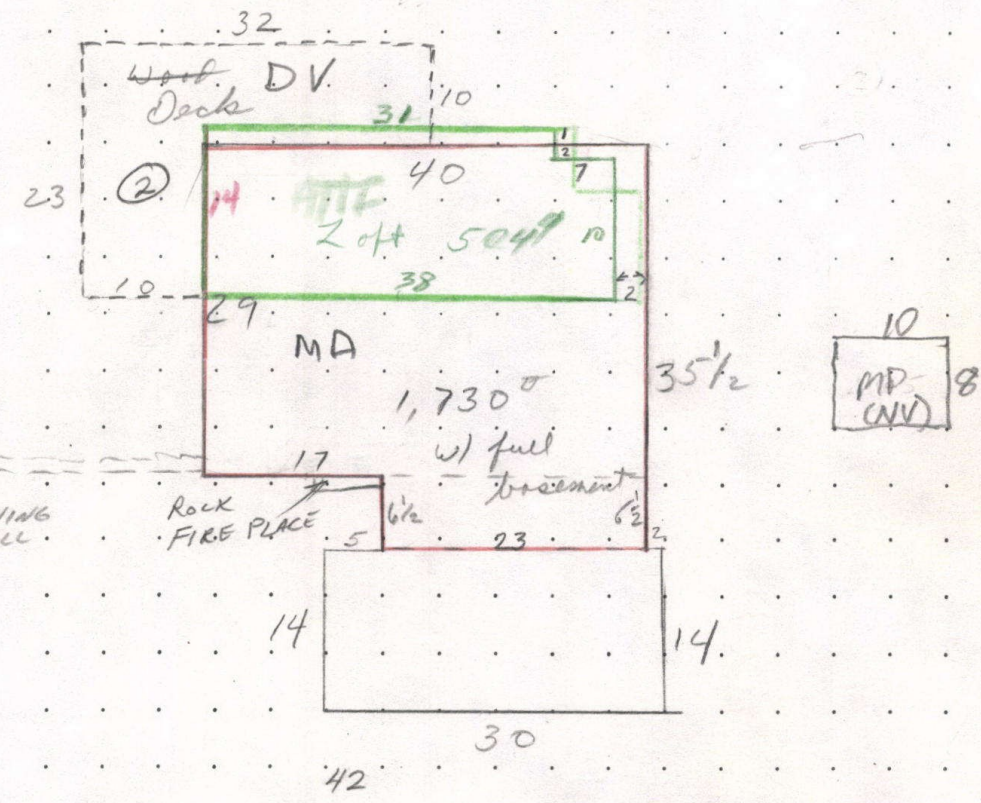 32
Wood DV
Deck
10
31
1
2
40
7
23
2
14
Loft
10
38
2
10
29
MA
35 1/2
10
MP
(NV)
8
1,730
w/ full
basement
17
ROCK
FIRE PLACE
6 1/2
6 1/2
5
23
2
14
14
30
42